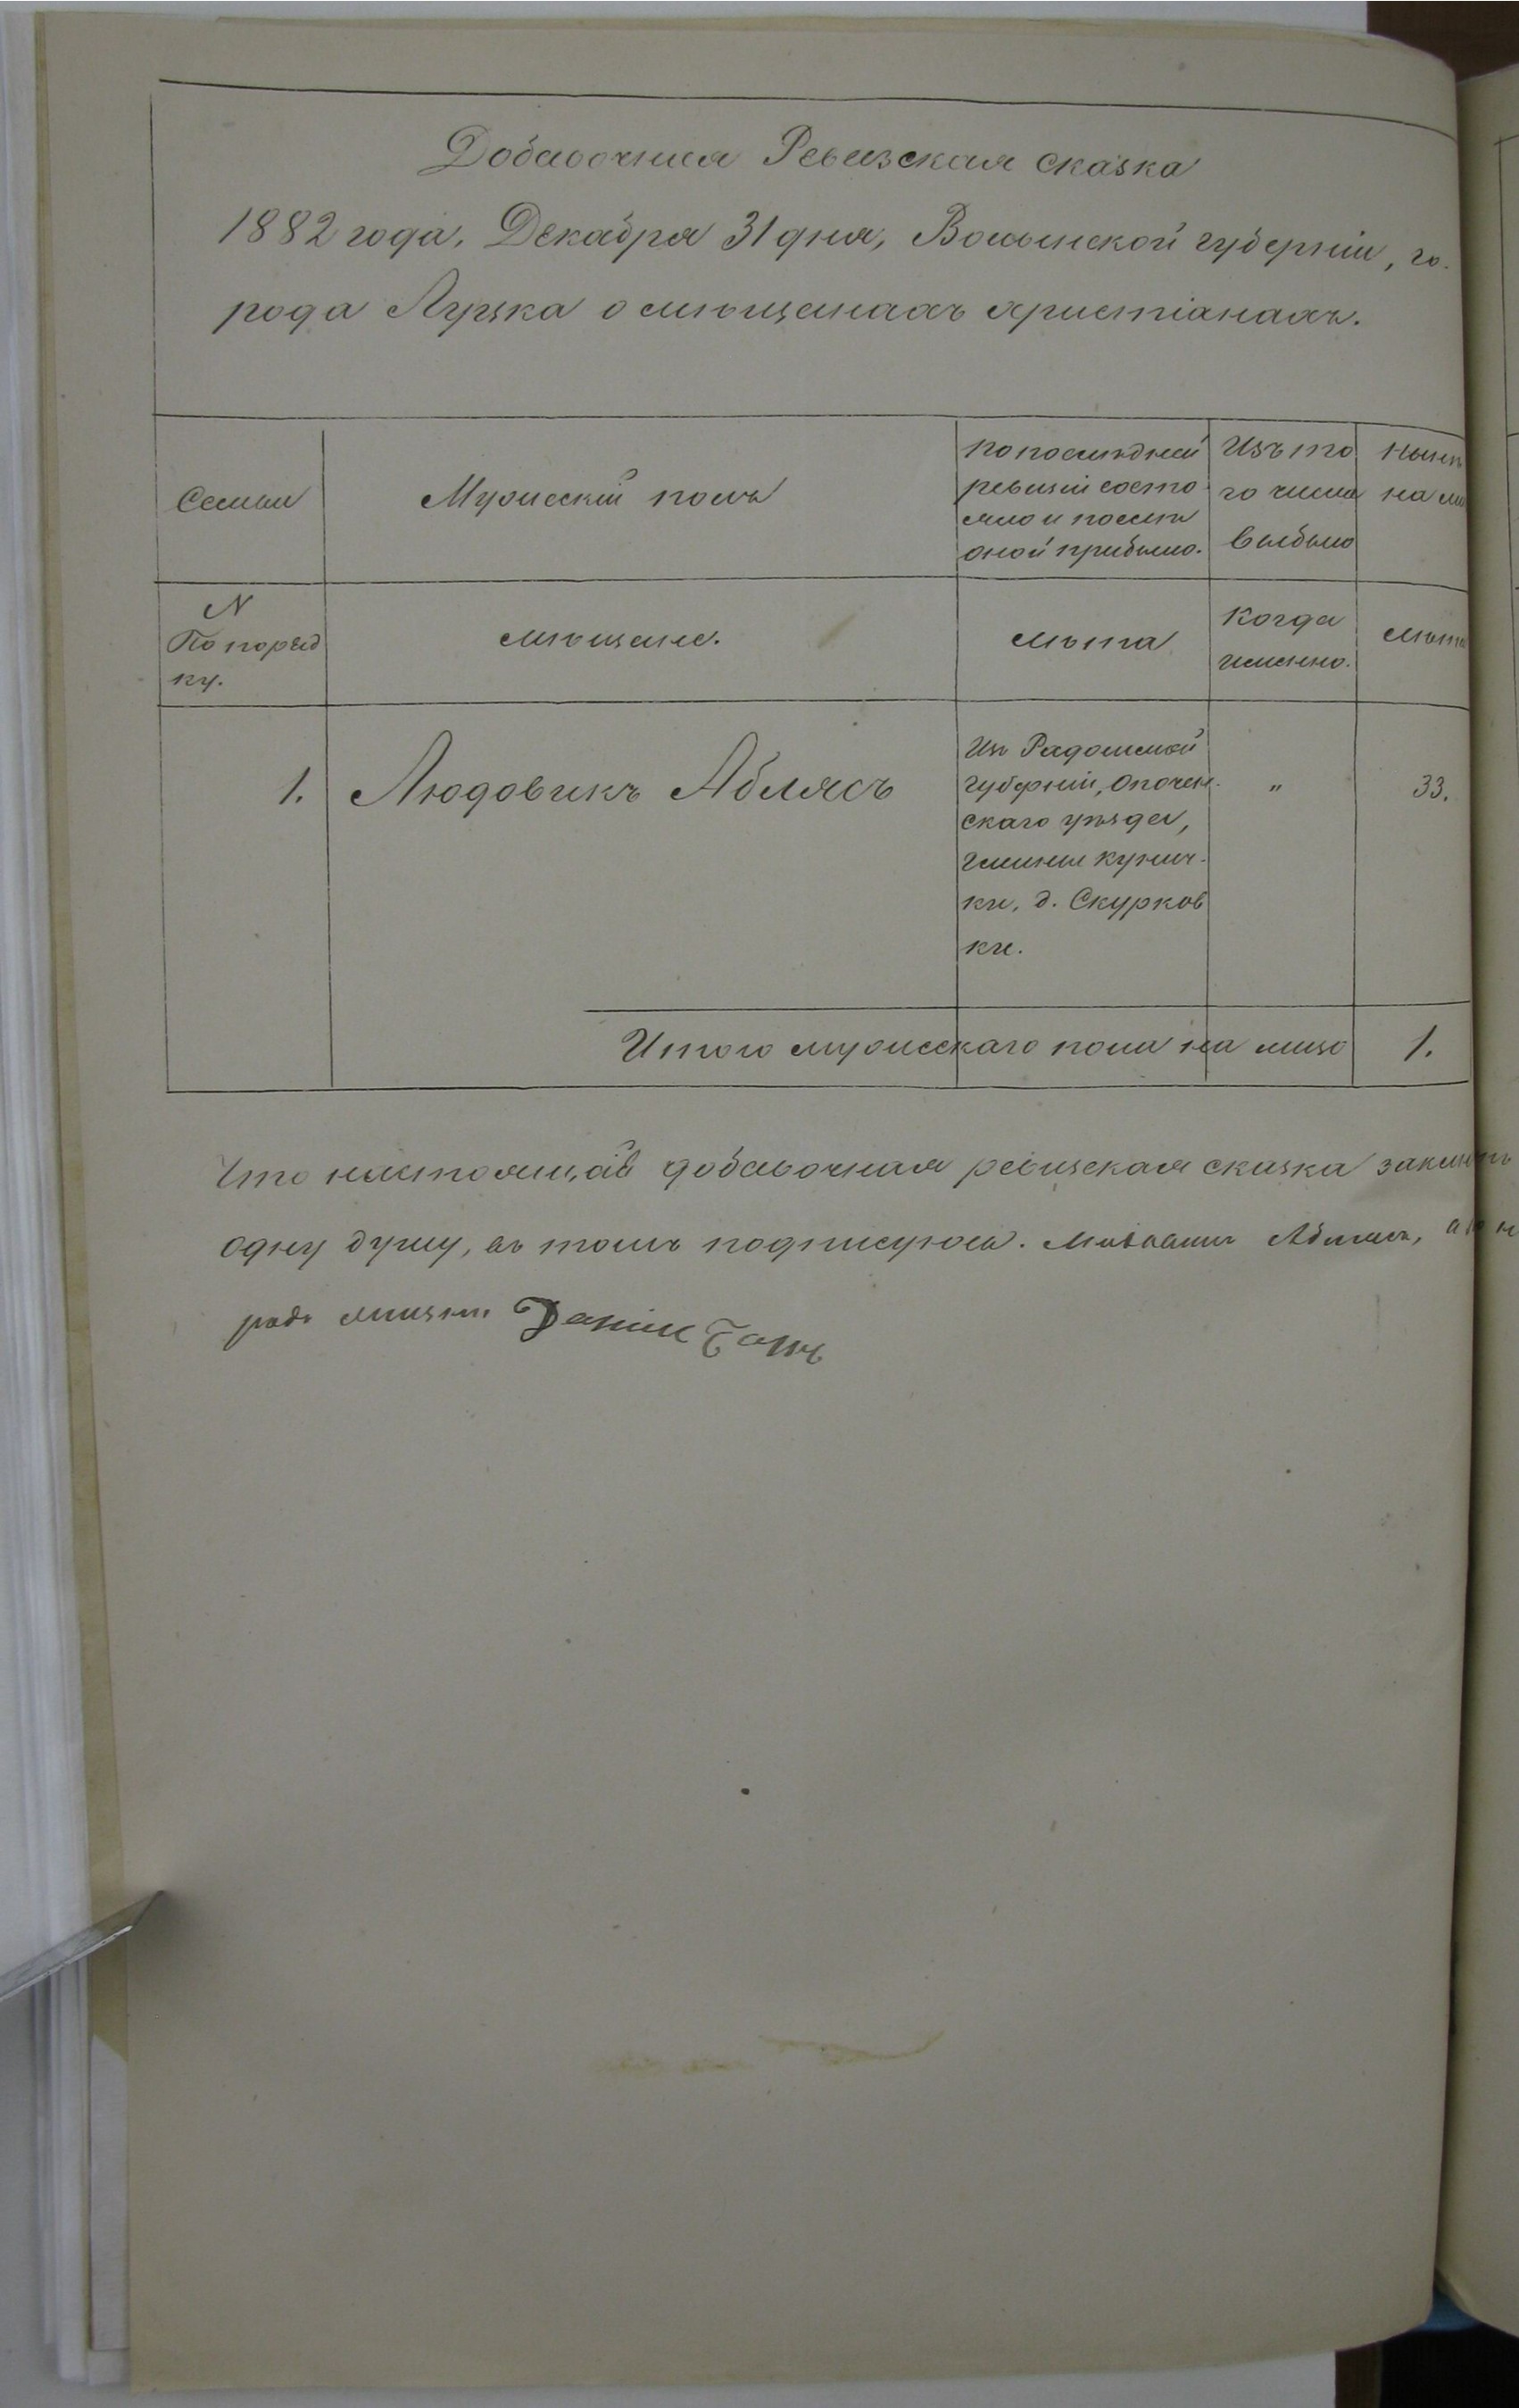 Добавочная Ревизская сказка
1882 года, Декабря 31 дня, Волынской губерніи, го-
рода Луцка о мѣщанахъ христіанахъ.
Семьи
Мужескій полъ
По послѣдней
ревизіи состо
яло и послѣ
оной прибыло.
Изъ то
го числа
выбыло
Нынѣ
на ли
N
По поряд
ку.
Мѣщане.
Лѣта
Когда
именно.
Лѣта
1.
Людовикъ Аблясъ
Из Радомской
губерніи, Опочен-
скаго уѣзда,
гмины Кунич-
ки, д. Скурков
ки.
"
33.
Итого мужескаго пола на лицо
1.
Что настоящая добавочная ревизская сказка
одну душу, въ томъ подписуюсь. Аблясъ,